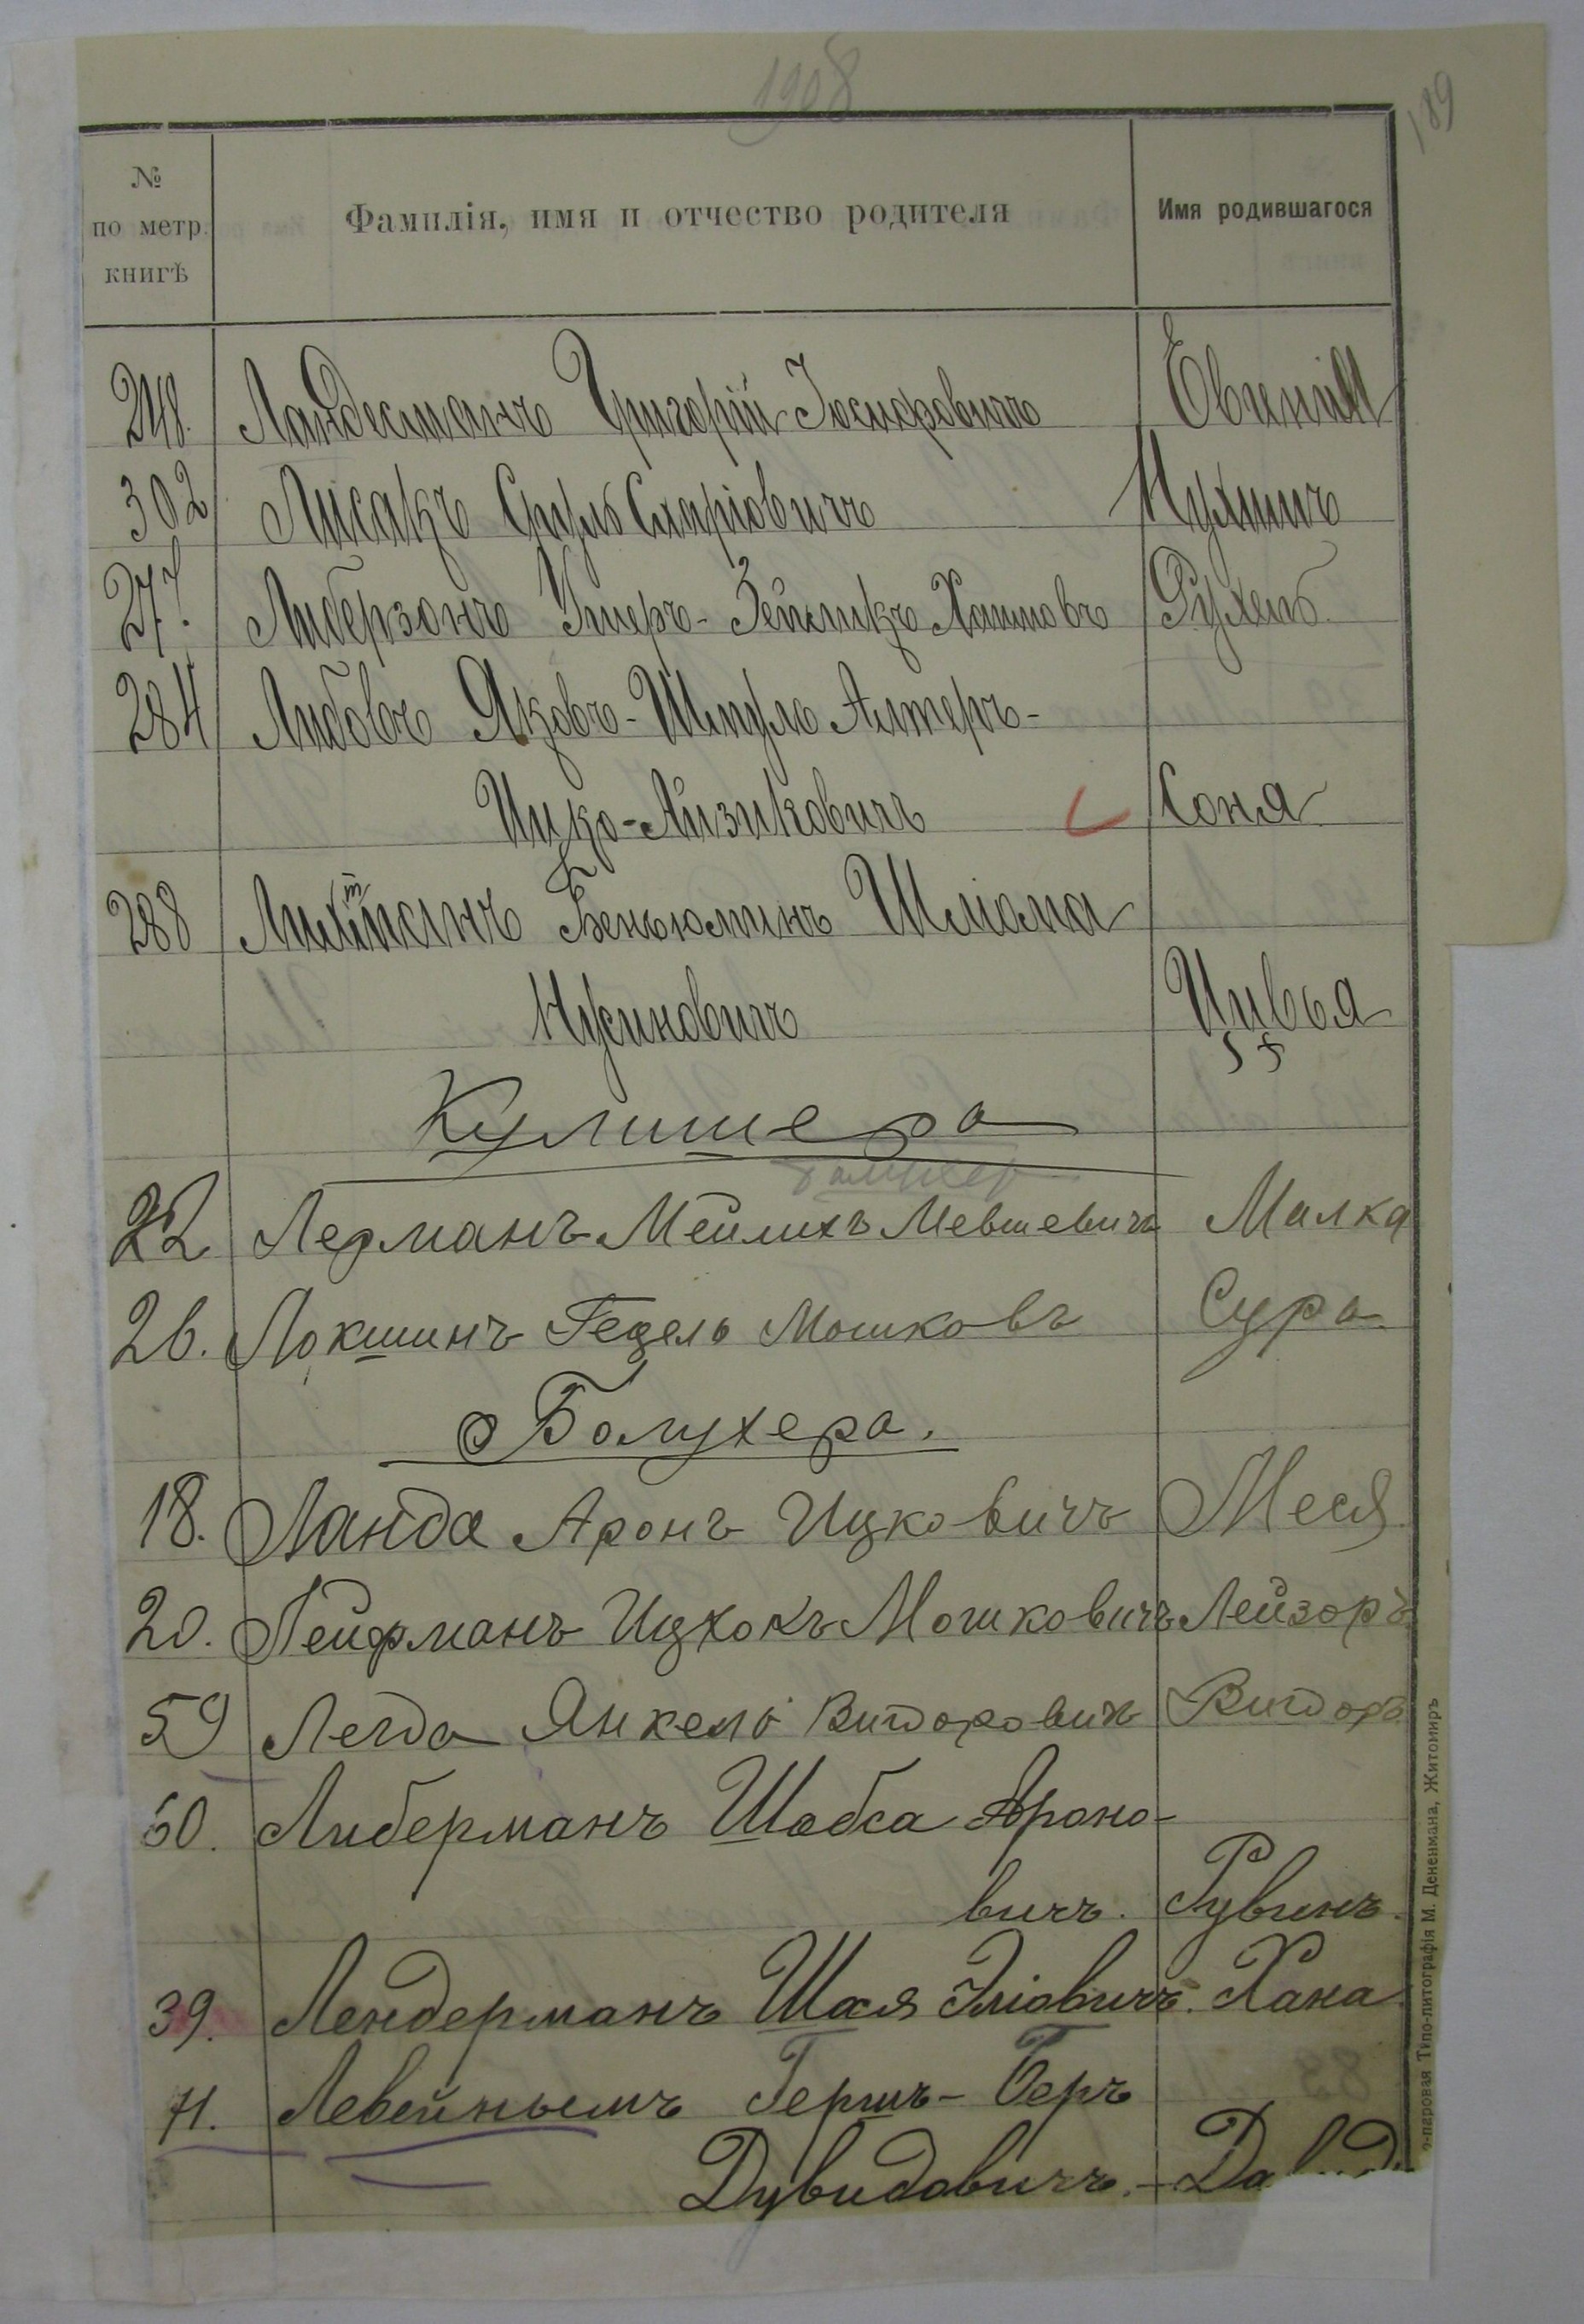 1908
189
№
по метр.
книгѣ
Фамилія, имя и отчество родителя
Имя родившагося
248. Ландесманъ Григорій Іосифовичъ
302 Лисакъ Сруль
277. Либерзонъ Хаимовъ Рухель
284 Либовъ Яковъ-Шмуль Алтеръ-
Ицко-Айзиковичъ Соня
288 Беньюминъ Шліома
Нусиновичъ Цивья
Кулишера
22 Лерманъ Мейлихъ Мевшевичъ Малка
26. Локшинъ Гедель Мошковъ Сура
Балухер
Болухера.
18. Ланда Аронъ Ицковичъ Меся
20. Лейфманъ Ицхокъ Мошковичъ Лейзоръ
59 Легда Янкель Вигдоровичъ Вигдоръ
60. Либерманъ Шабса Ароно-
вичъ. Рувинъ.
39. Лендерманъ Шая Эліовичъ. Хана
71. Левейнымъ Гершъ-Беръ
Дувидовичъ. - Давид
о-паровая Типо-литографія М. Дененмана, Житомиръ